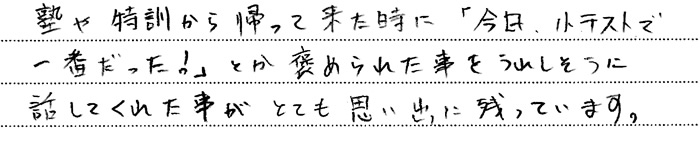 塾や特訓から帰って来た時に「今日、小テストで
一番だった!」とか褒められた事をうれしそうに
話してくれた事がとても思い出に残っています。